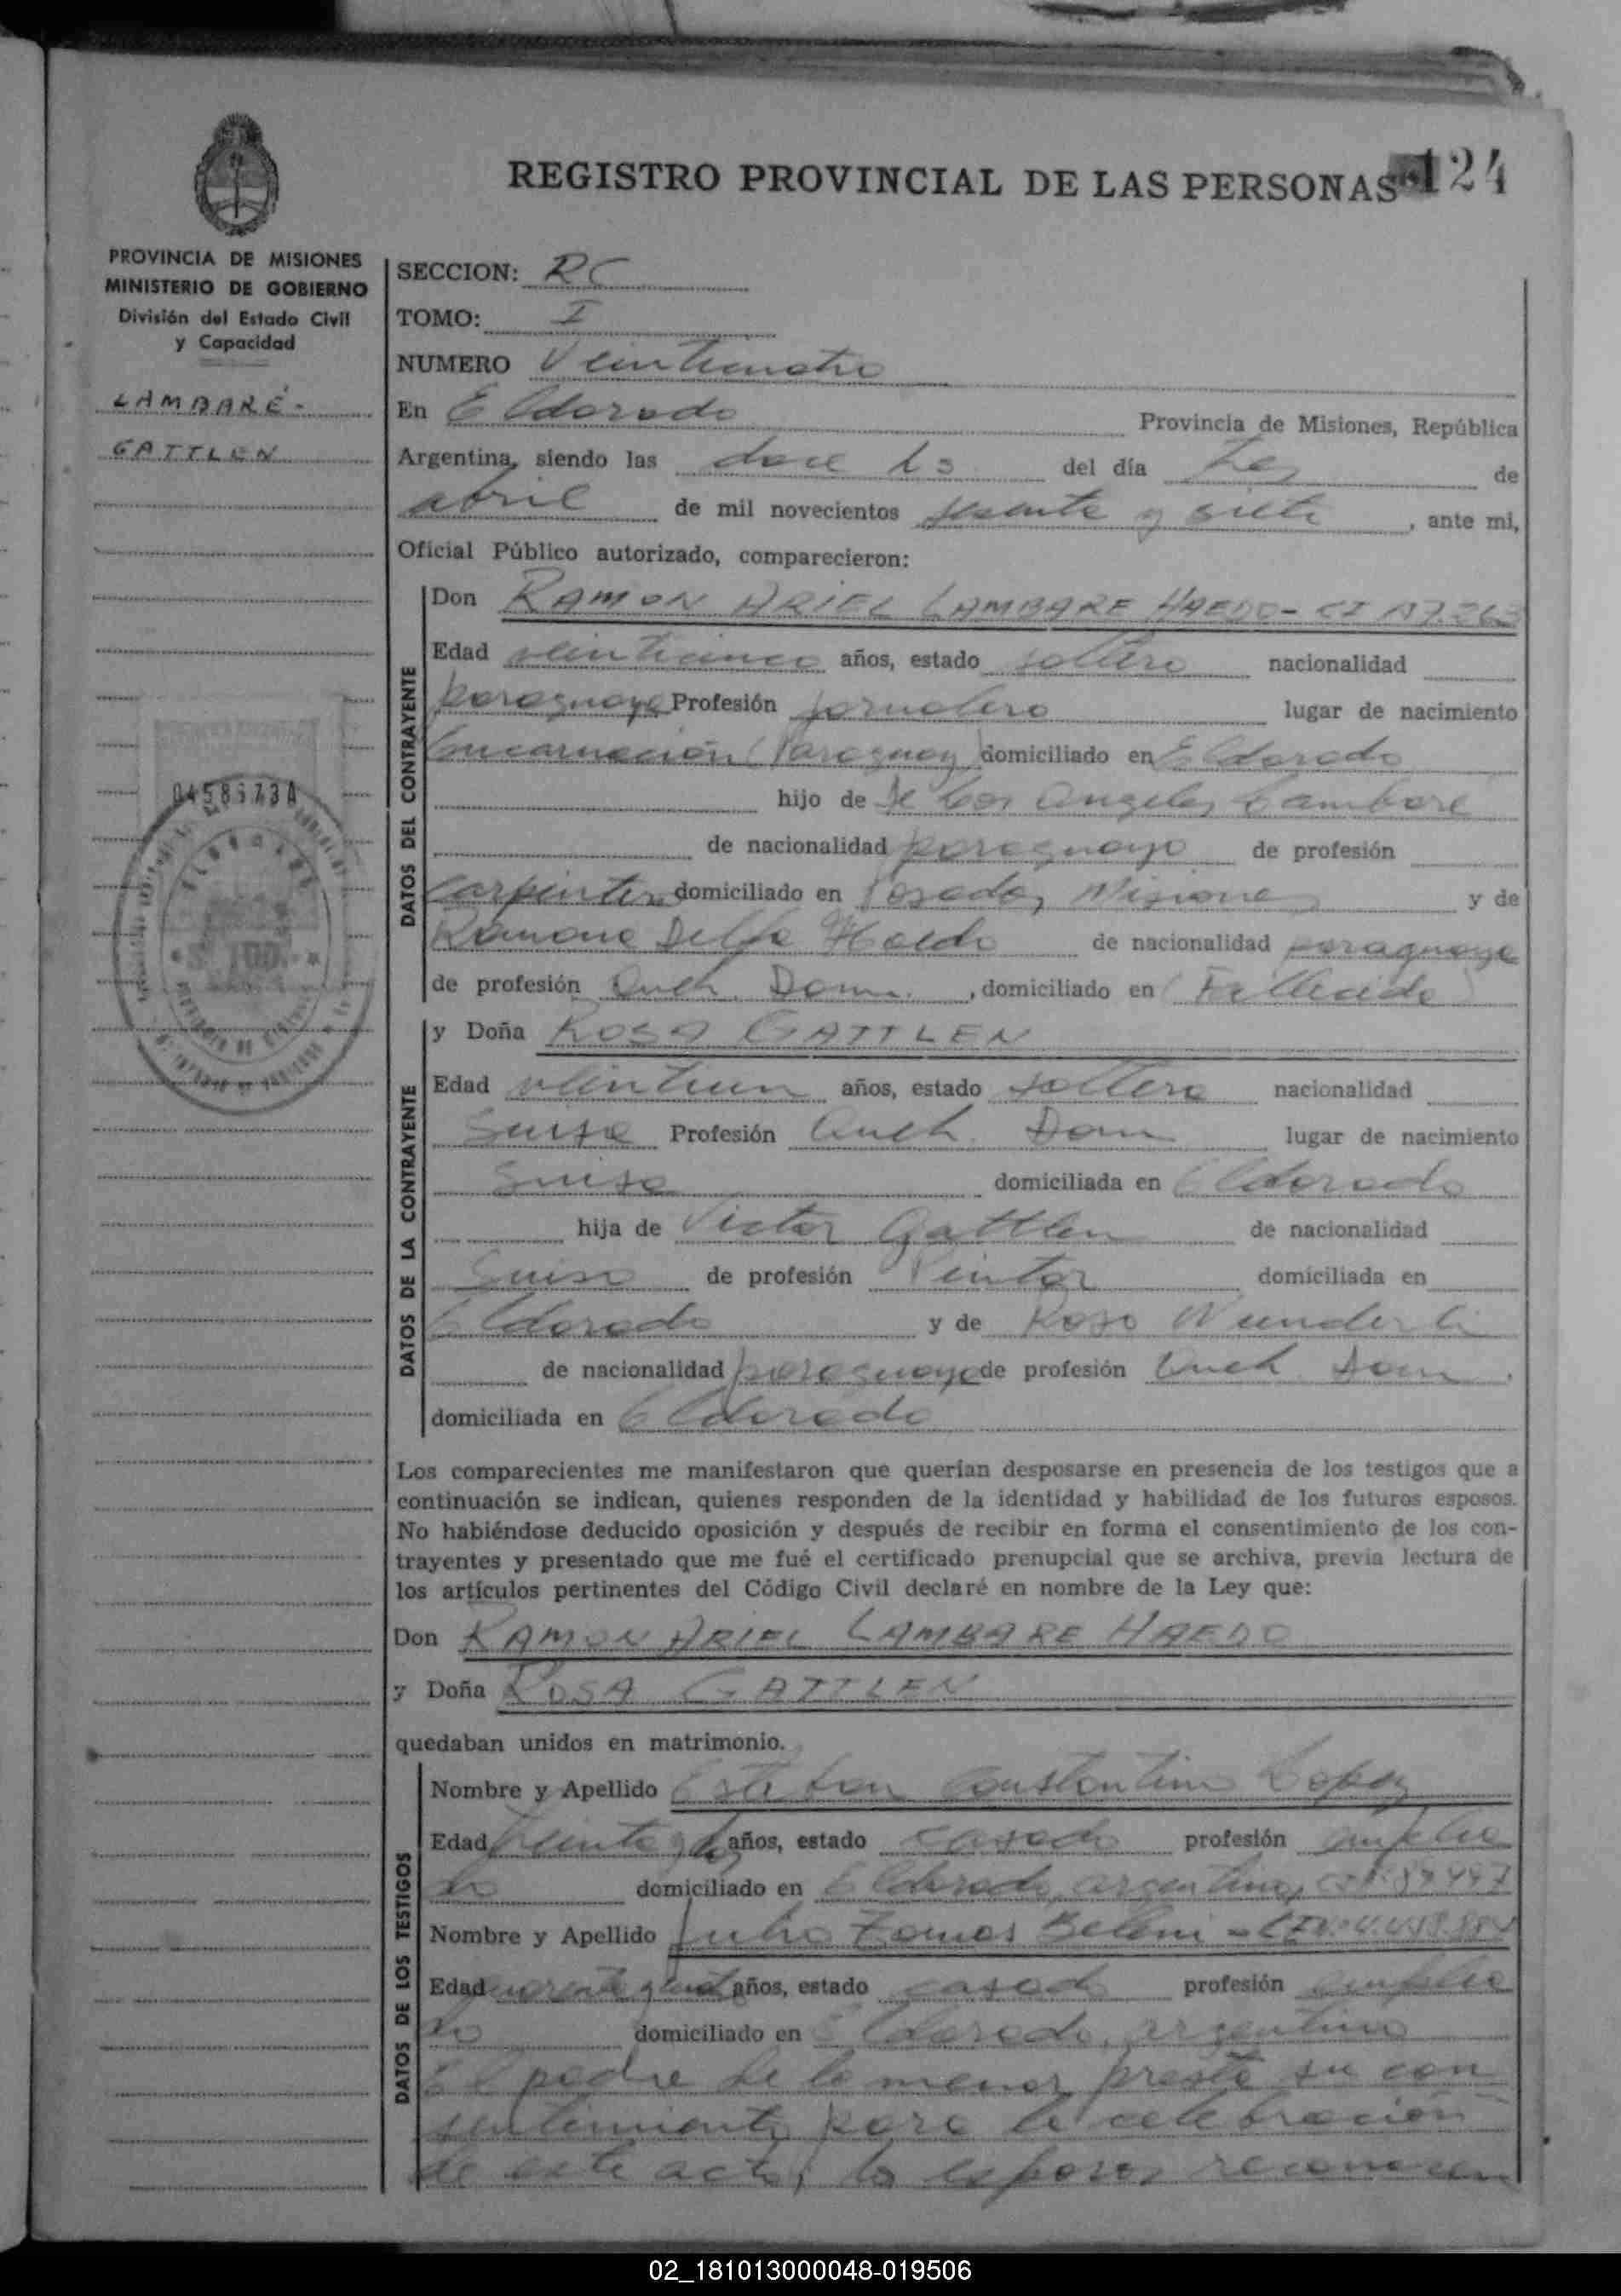 REGISTRO PROVINCIAL DE LAS PERSONAS 124
PROVINCIA DE MISIONES
MINISTERIO DE GOBIERNO
División del Estado Civil
y Capacidad
LAMBARÉ -
GATTLEN
0458673A
SECCION: RC
TOMO: I
NUMERO Veinticuatro
En Eldorado Provincia de Misiones, República
Argentina, siendo las doce hs del día tres de
abril de mil novecientos sesenta y siete, ante mi,
Oficial Público autorizado, comparecieron:
DATOS DEL CONTRAYENTE
Don RAMON ARIEL LAMBARE HAEDO - CI
Edad veinticinco años, estado soltero nacionalidad
paraguaya Profesión jornalero lugar de nacimiento
Encarnación (Paraguay) domiciliado en Eldorado
hijo de de los Angeles Lambare
de nacionalidad paraguayo de profesión
carpintero domiciliado en Posadas, Misiones y de
Ramona Haedo de nacionalidad paraguaya
de profesión Queh. Dom., domiciliado en (Fallecida)
DATOS DE LA CONTRAYENTE
y Doña ROSA GATTLEN
Edad veintiun años, estado soltera nacionalidad
Suisa Profesión Queh. Dom lugar de nacimiento
Suisa domiciliada en Eldorado
hija de Victor Gattlen de nacionalidad
Suiso de profesión Pintor domiciliada en
Eldorado y de Rosa Wunderli
de nacionalidad paraguaya de profesión Queh. Dom.
domiciliada en Eldorado
Los comparecientes me manifestaron que querían desposarse en presencia de los testigos que a
continuación se indican, quienes responden de la identidad y habilidad de los futuros esposos.
No habiéndose deducido oposición y después de recibir en forma el consentimiento de los con-
trayentes y presentado que me fué el certificado prenupcial que se archiva, previa lectura de
los artículos pertinentes del Código Civil declaré en nombre de la Ley que:
Don RAMON ARIEL LAMBARE HAEDO
y Doña ROSA GATTLEN
quedaban unidos en matrimonio.
DATOS DE LOS TESTIGOS
Nombre y Apellido Esteban Constantino Lopez
Edad treinta y dos años, estado casado profesión emplea
do domiciliado en Eldorado, argentino,
Nombre y Apellido Julio
Edad años, estado casado profesión emplea
do domiciliado en Eldorado, argentino
El padre de la menor presta su con
sentimiento para la celebración
de este acto, los esposos reconocen
02_181013000048-019506